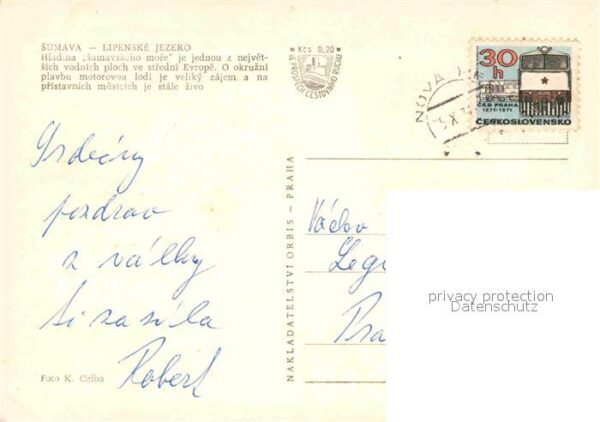 ŠUMAVA — LIPENSKÉ JEZERO
Hladina „šumavského moře" je jednou z největ-
ších vodních ploch ve střední Evropě. O okružní
plavbu motorovou lodí je veliký zájem a na
přístavních můstcích je stále živo
Kčs 0,20
VE PROSPĚCH CESTOVNÍHO RUCHU
NOVÁ
30
h
ČKD PRAHA
1871-1971
ČESKOSLOVENSKO
Srdečný
pozdrav
z války
Ti zasílá
Robert
Foto K. Čelba
NAKLADATELSTVÍ ORBIS — PRAHA
Václav
Legi
Pra
privacy protection
Datenschutz